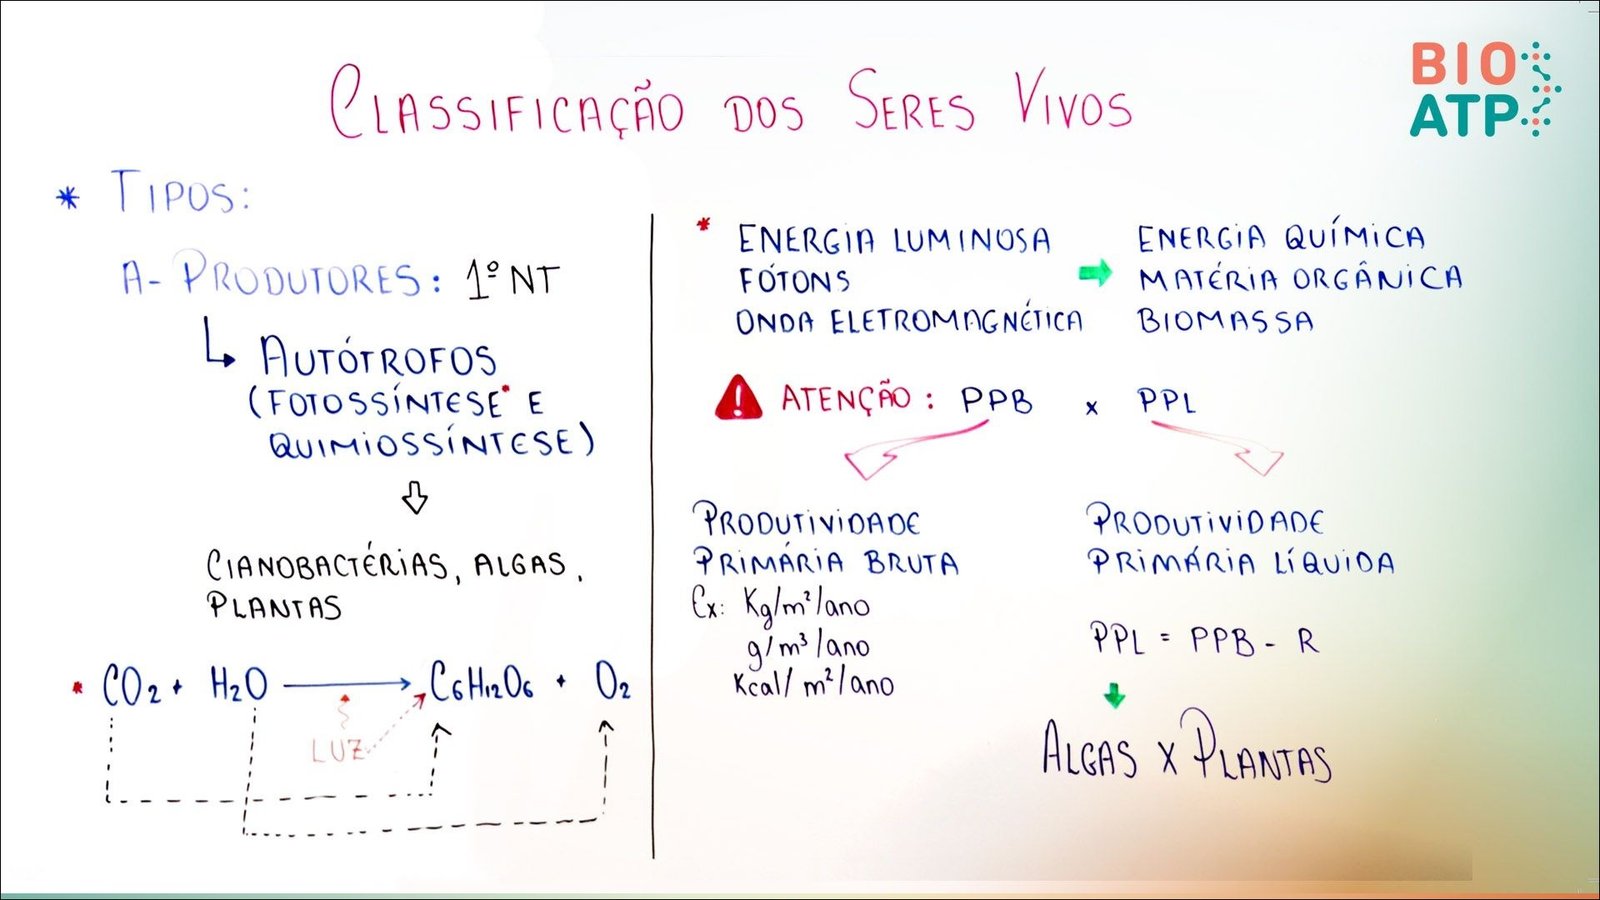 CLASSIFICAÇÃO DOS SERES VIVOS
BIO
ATP
* TIPOS:
A- PRODUTORES: 1º NT
AUTÓTROFOS
(FOTOSSÍNTESE* E
QUIMIOSSÍNTESE)
CIANOBACTÉRIAS, ALGAS,
PLANTAS
* CO2 + H2O → C6H12O6 + O2
LUZ
* ENERGIA LUMINOSA → ENERGIA QUÍMICA
FÓTONS MATÉRIA ORGÂNICA
ONDA ELETROMAGNÉTICA BIOMASSA
ATENÇÃO: PPB x PPL
PRODUTIVIDADE
PRIMÁRIA BRUTA
Ex: Kg/m²/ano
g/m³/ano
Kcal/m²/ano
PRODUTIVIDADE
PRIMÁRIA LÍQUIDA
PPL = PPB - R
ALGAS X PLANTAS